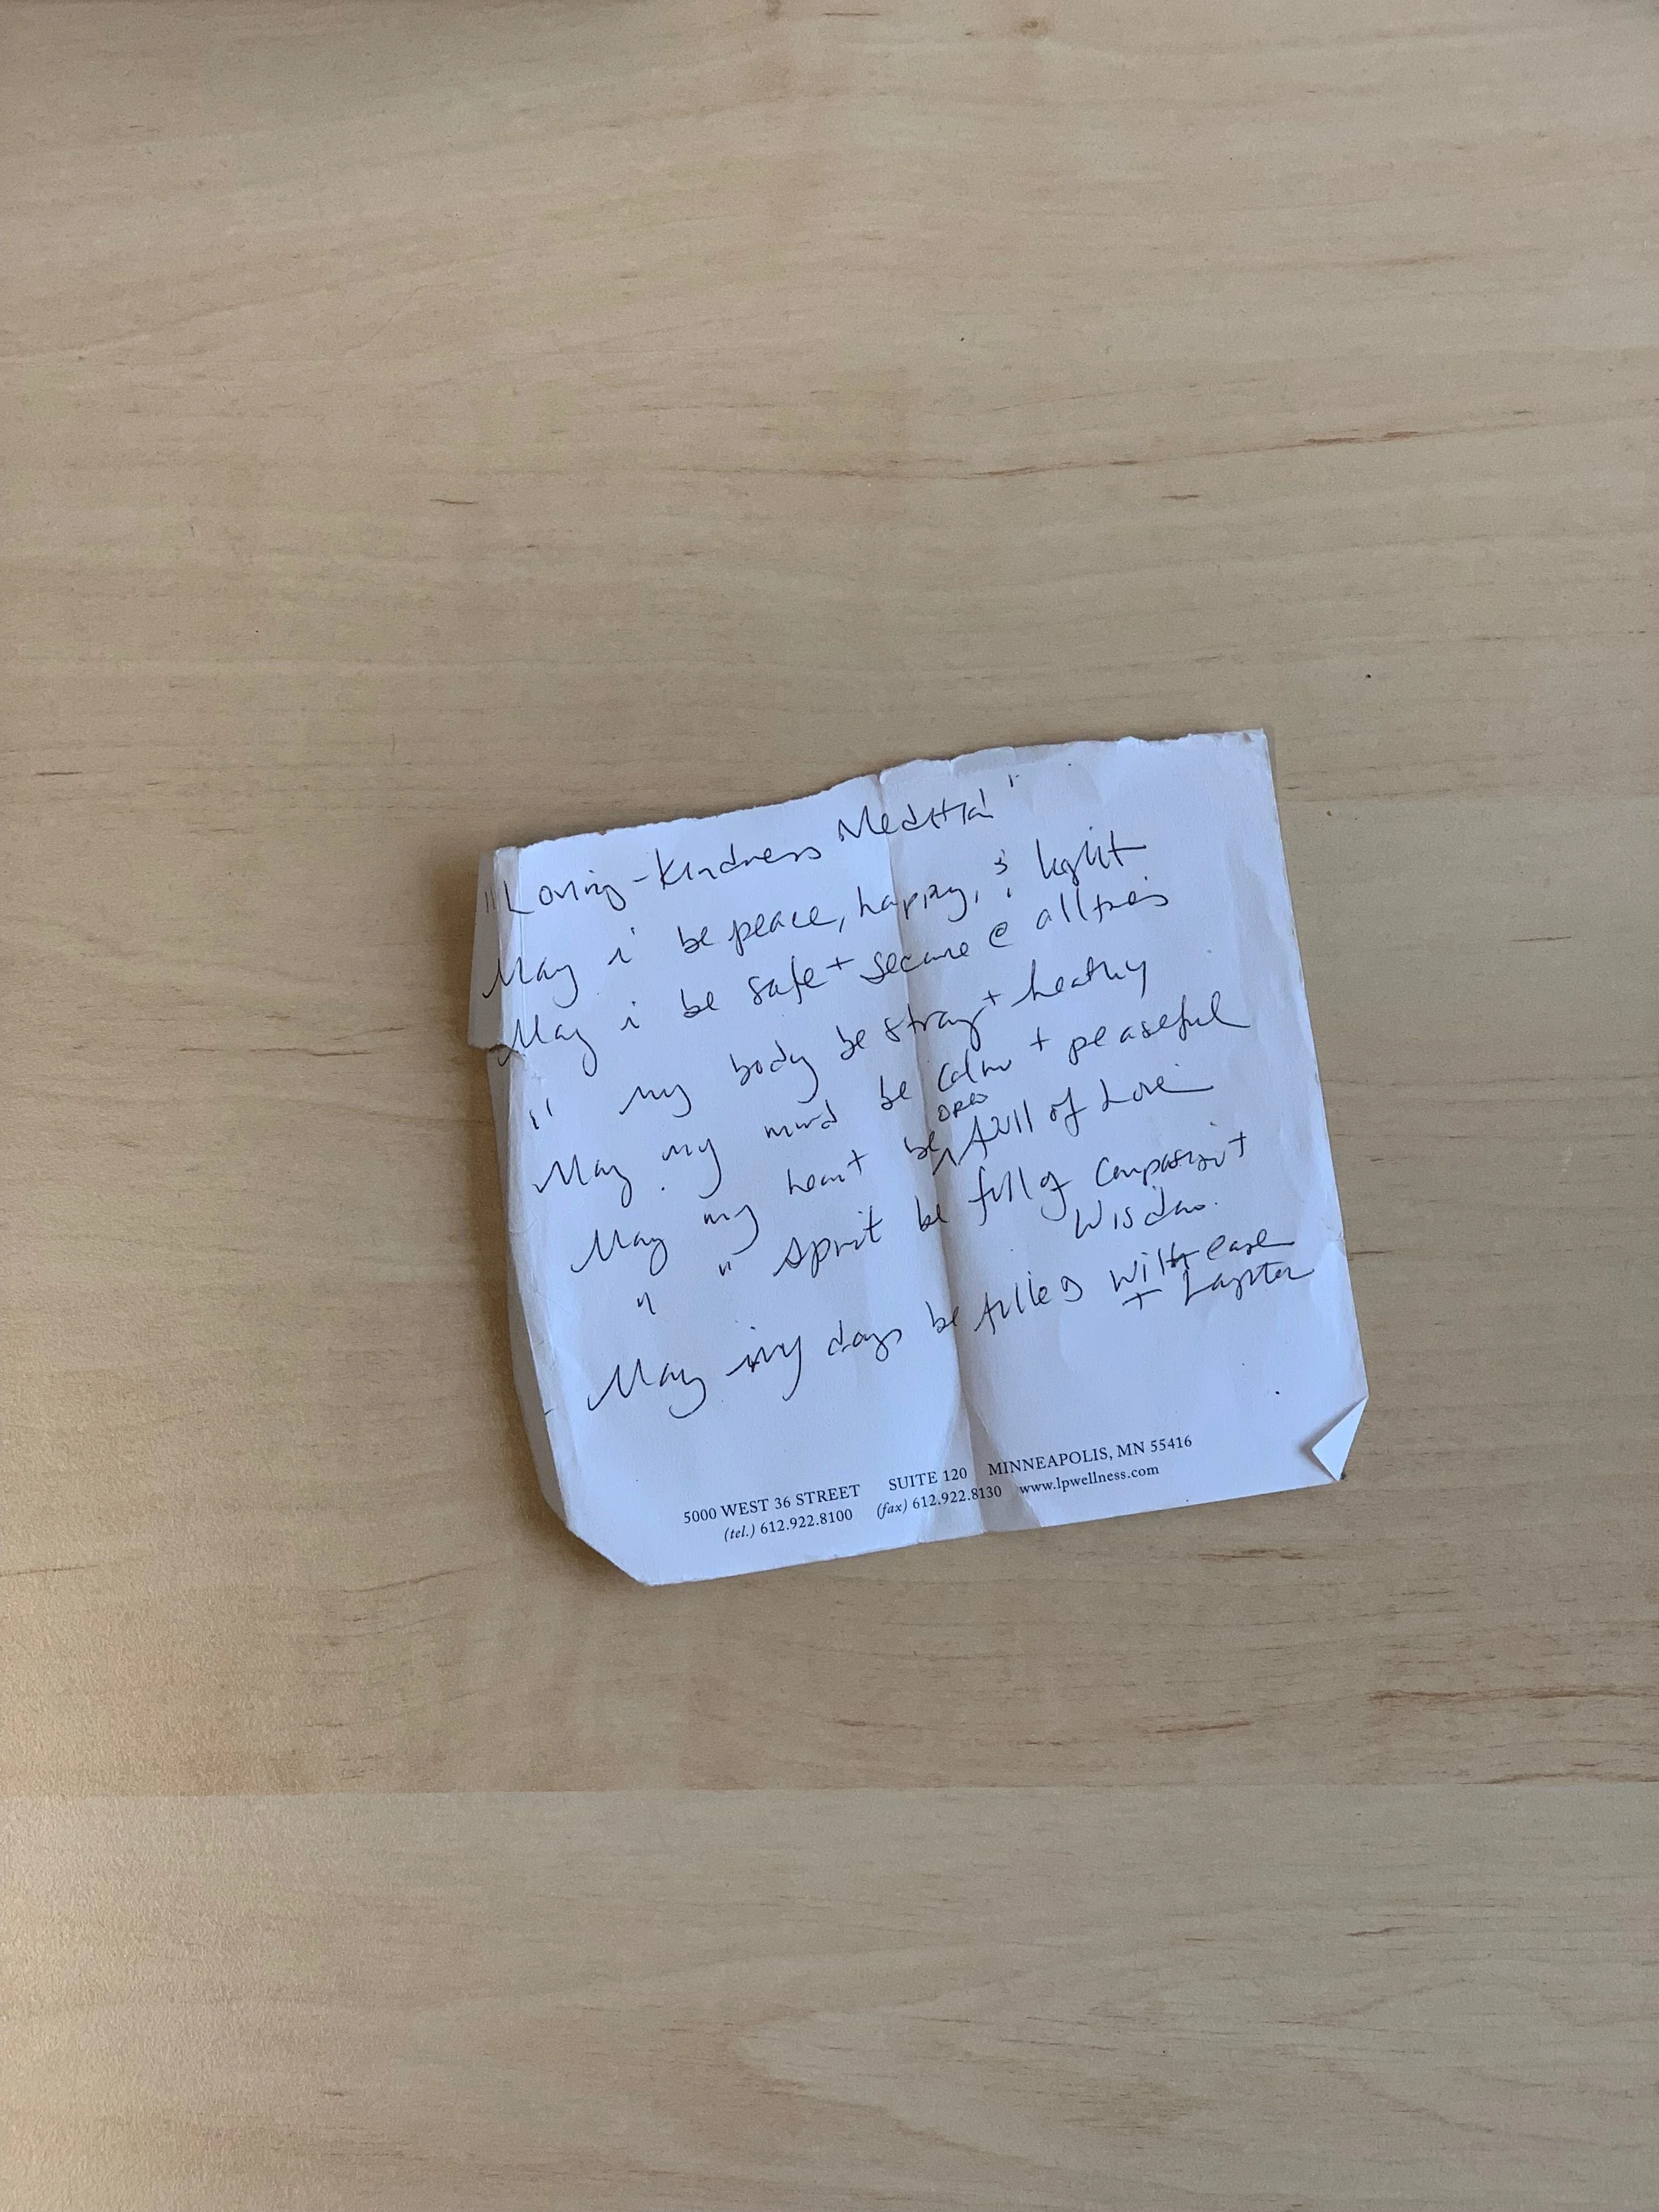 "Loving-Kindness Meditta"
May i be peace, happy, & light
May i be safe + secure @ all times
" my body be strong + healthy
May my mind be calm + peaseful
open
May my heart be ^ full of Love
" " Spirit be full of Compassion +
Wisdom.
May my days be filled with ease
+ Laughter
5000 WEST 36 STREET SUITE 120 MINNEAPOLIS, MN 55416
(tel.) 612.922.8100 (fax) 612.922.8130 www.lpwellness.com